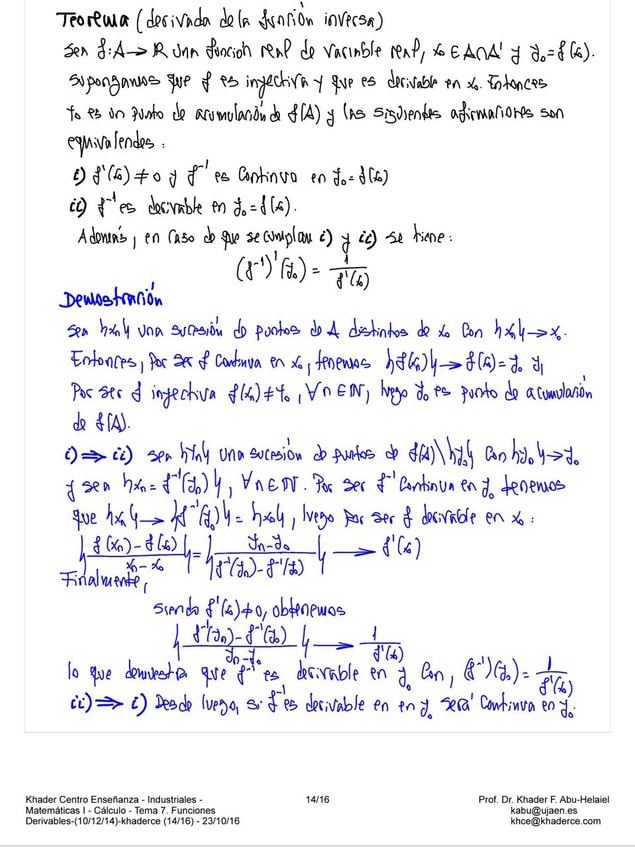 Teorema (derivada de la función inversa)
Sea f: A → R una función real de variable real, x₀ ∈ A∩A' y y₀ = f(x₀).
Supongamos que f es inyectiva y que es derivable en x₀. Entonces
y₀ es un punto de acumulación de f(A) y las siguientes afirmaciones son
equivalentes:
i) f'(x₀) ≠ 0 y f⁻¹ es continua en y₀ = f(x₀)
ii) f⁻¹ es derivable en y₀ = f(x₀).
Además, en caso de que se cumplan i) y ii) se tiene:
(f⁻¹)'(y₀) = 1/f'(x₀)
Demostración
Sea {xₙ} una sucesión de puntos de A distintos de x₀ con {xₙ} → x₀.
Entonces, por ser f continua en x₀, tenemos {f(xₙ)} → f(x₀) = y₀ y,
por ser f inyectiva f(xₙ) ≠ y₀, ∀n ∈ ℕ, luego y₀ es punto de acumulación
de f(A).
i) ⇒ ii) Sea {yₙ} una sucesión de puntos de f(A)\{y₀} con {yₙ} → y₀
y sea {xₙ = f⁻¹(yₙ)}, ∀n ∈ ℕ. Por ser f⁻¹ continua en y₀ tenemos
que {xₙ} → {f⁻¹(y₀)} = {x₀}, luego por ser f derivable en x₀:
{(f(xₙ) - f(x₀))/(xₙ - x₀)} = {(yₙ - y₀)/(f⁻¹(yₙ) - f⁻¹(y₀))} → f'(x₀)
Finalmente,
siendo f'(x₀) ≠ 0, obtenemos
{(f⁻¹(yₙ) - f⁻¹(y₀))/(yₙ - y₀)} → 1/f'(x₀)
lo que demuestra que f⁻¹ es derivable en y₀ con, (f⁻¹)'(y₀) = 1/f'(x₀)
ii) ⇒ i) Desde luego, si f⁻¹ es derivable en en y₀ será continua en y₀.
Khader Centro Enseñanza - Industriales -
Matemáticas I - Cálculo - Tema 7. Funciones
Derivables-(10/12/14)-khaderce (14/16) - 23/10/16
14/16
Prof. Dr. Khader F. Abu-Helaiel
kabu@ujaen.es
khce@khaderce.com